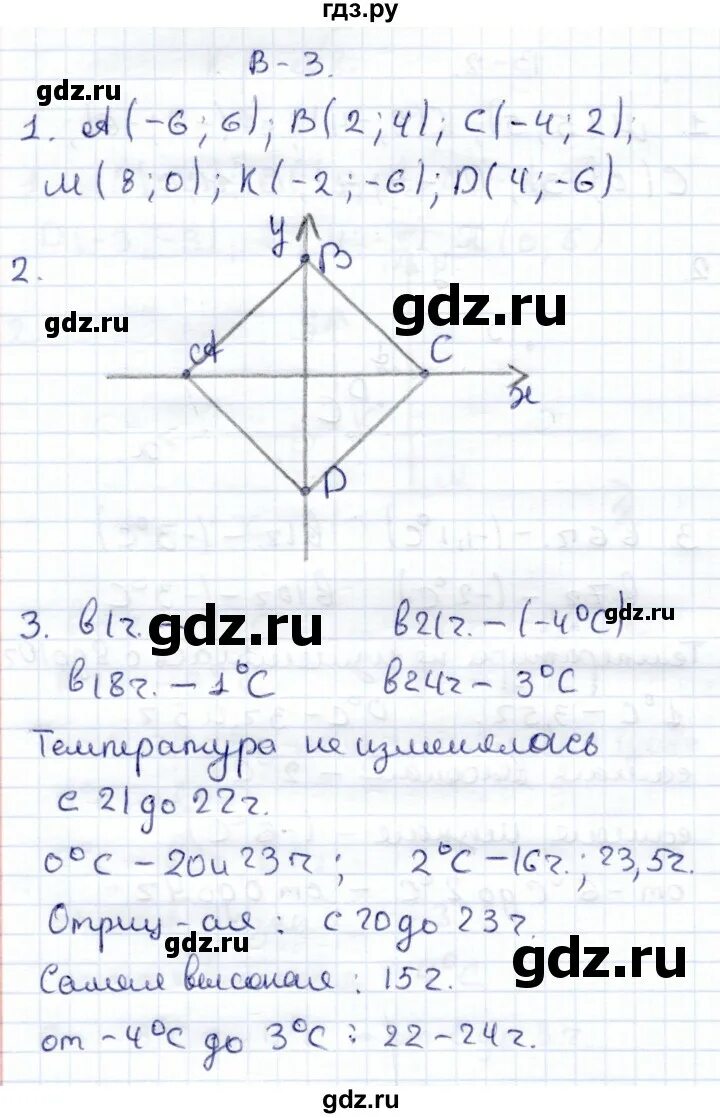 гдз.ру
В-3.
gdz.ru
1. А(-6; 6); В(2; 4); С(-4; 2);
М(8; 0); К(-2; -6); D(4; -6)
2.
y
B
gdz.ru
gdz.ru
A
C
x
D
3. в1г. -
gdz.ru
в21г. - (-4°С)
gdz.ru
в18ч. - 1°С
в24ч - 3°С
Температура не изменялась
с 21 до 22ч.
0°С - 20 и 23ч; 2°С - 16ч.; 23,5ч.
Отриц-ая: с 20 до 23ч.
gdz.ru
gdz.ru
Самая высокая: 15ч.
от -4°С до 3°С: 22-24ч.
gdz.ru